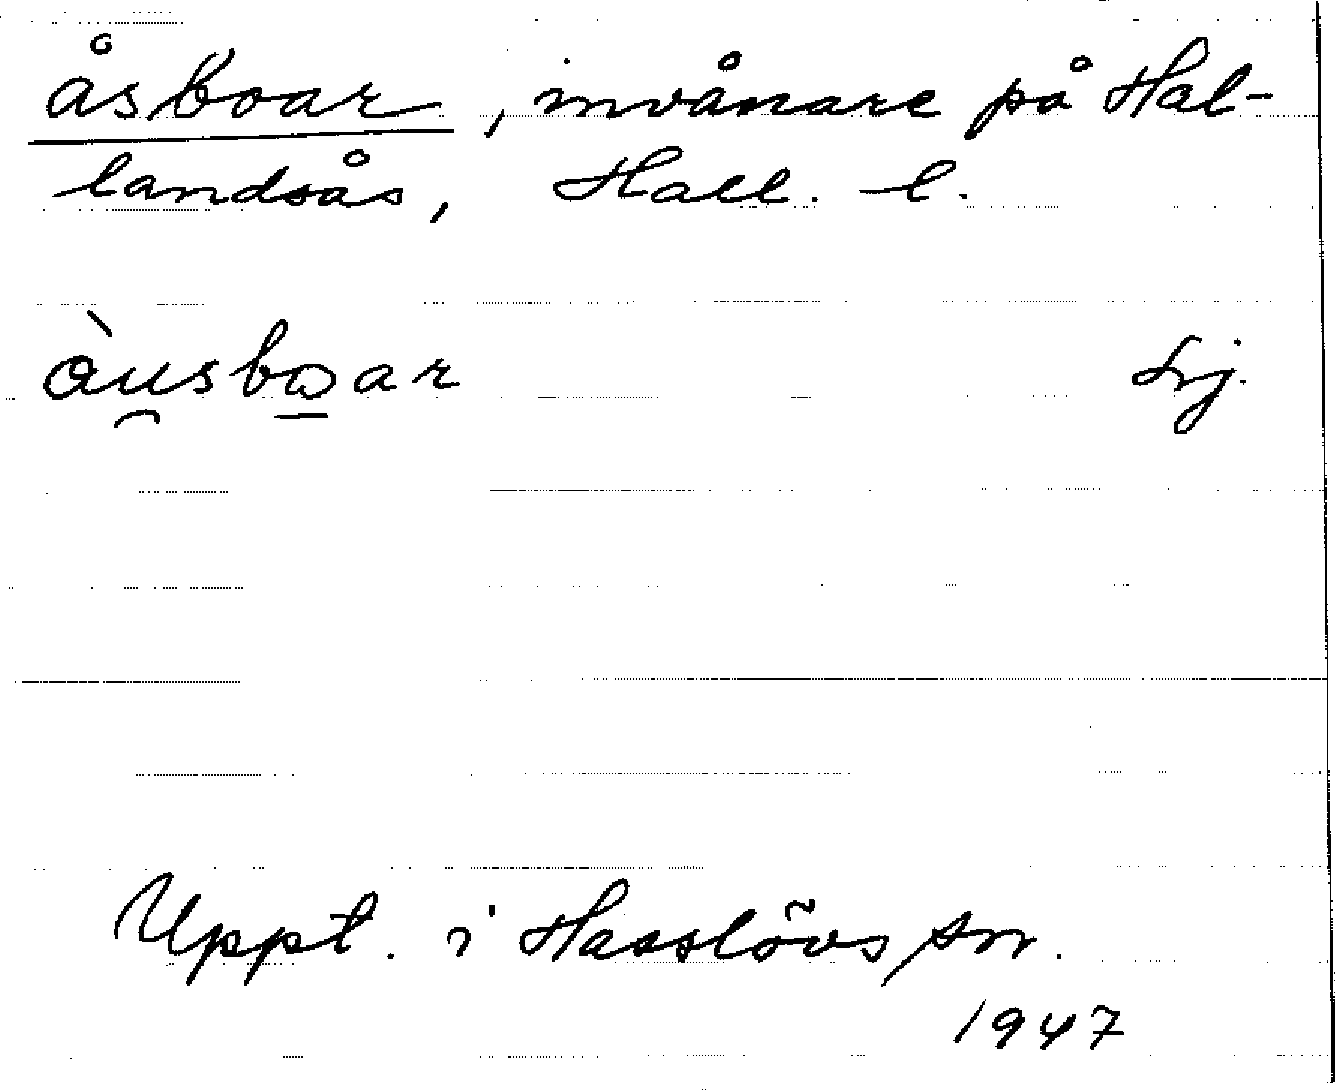 åsboar, invånare på Hal-
landsås, Hall. l.
àu̯sbo̲ar
Uppt. i Hasslövs sn.
1947